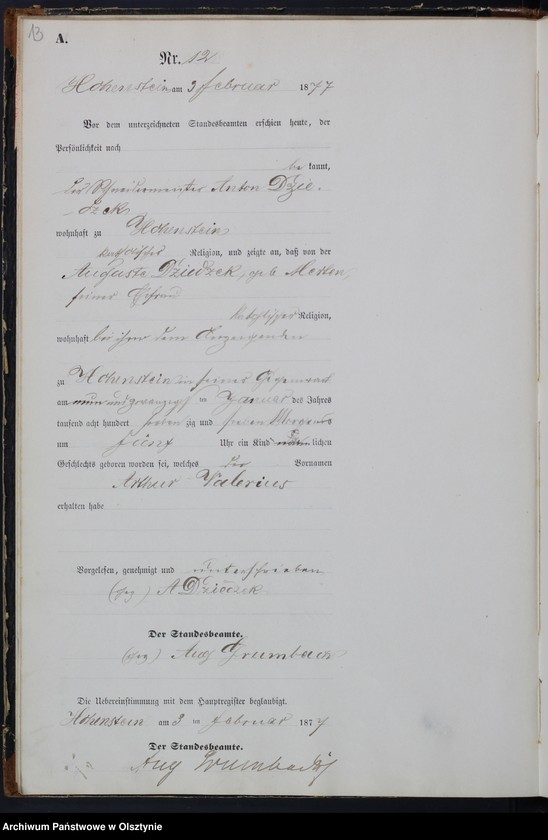 13
A.
Nr. 12
Hohenstein am 3 Februar 1877
Vor dem unterzeichneten Standesbeamten erschien heute, der
Persönlichkeit nach
be kannt,
der Schneidermeister Anton Dzie-
dzek
wohnhaft zu Hohenstein
katholischer Religion, und zeigte an, daß von der
Auguste Dziedzek, geb.
seiner Ehefrau
katholischer Religion,
wohnhaft bei ihm dem Anzeigenden
zu Hohenstein in seiner Gegenwart
am neun und zwanzigsten Januar des Jahres
tausend acht hundert sieben zig und sieben Morgens
um fünf Uhr ein Kind männlichen
Geschlechts geboren worden sei, welches Vornamen
Arthur Valerius
erhalten habe
Vorgelesen, genehmigt und unterschrieben
(gez) A Dziedzek
Der Standesbeamte.
(gez) Aug Grumbach
Die Uebereinstimmung mit dem Hauptregister beglaubigt.
Hohenstein am 3 ten Februar 1877
Der Standesbeamte.
Aug Grumbach
Archiwum Państwowe w Olsztynie